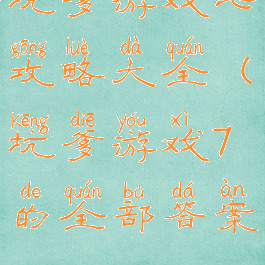 坑爹游戏
gōng lüè dà quán
攻略大全（
kēng diē yóu xì
坑爹游戏7
de quán bù dá àn
的全部答案